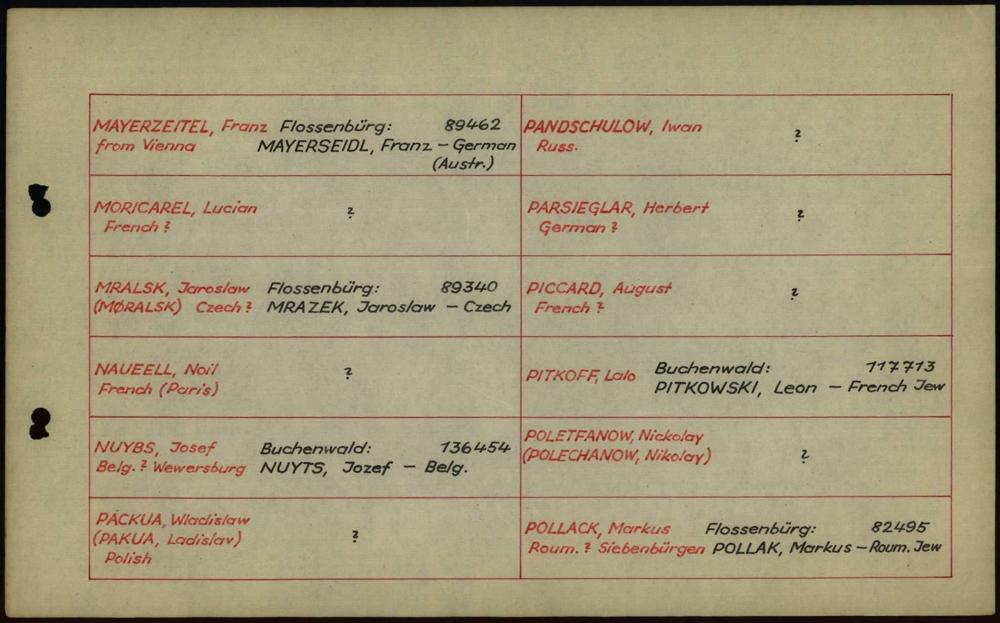 MAYERZEITEL, Franz Flossenbürg: 89462
from Vienna MAYERSEIDL, Franz – German
(Austr.)
MORICAREL, Lucian ?
French ?
MRALSK, Jaroslaw Flossenbürg: 89340
(MØRALSK) Czech ? MRAZEK, Jaroslaw – Czech
NAUEELL, Noil ?
French (Paris)
NUYBS, Josef Buchenwald: 136454
Belg. ? Wewersburg NUYTS, Jozef – Belg.
PACKUA, Wladislaw
(PAKUA, Ladislav) ?
Polish
PANDSCHULOW, Iwan ?
Russ.
PARSIEGLAR, Herbert ?
German ?
PICCARD, August ?
French ?
PITKOFF, Lalo Buchenwald: 117713
PITKOWSKI, Leon – French Jew
POLETFANOW, Nickolay
(POLECHANOW, Nikolay) ?
POLLACK, Markus Flossenbürg: 82495
Roum. ? Siebenbürgen POLLAK, Markus – Roum. Jew